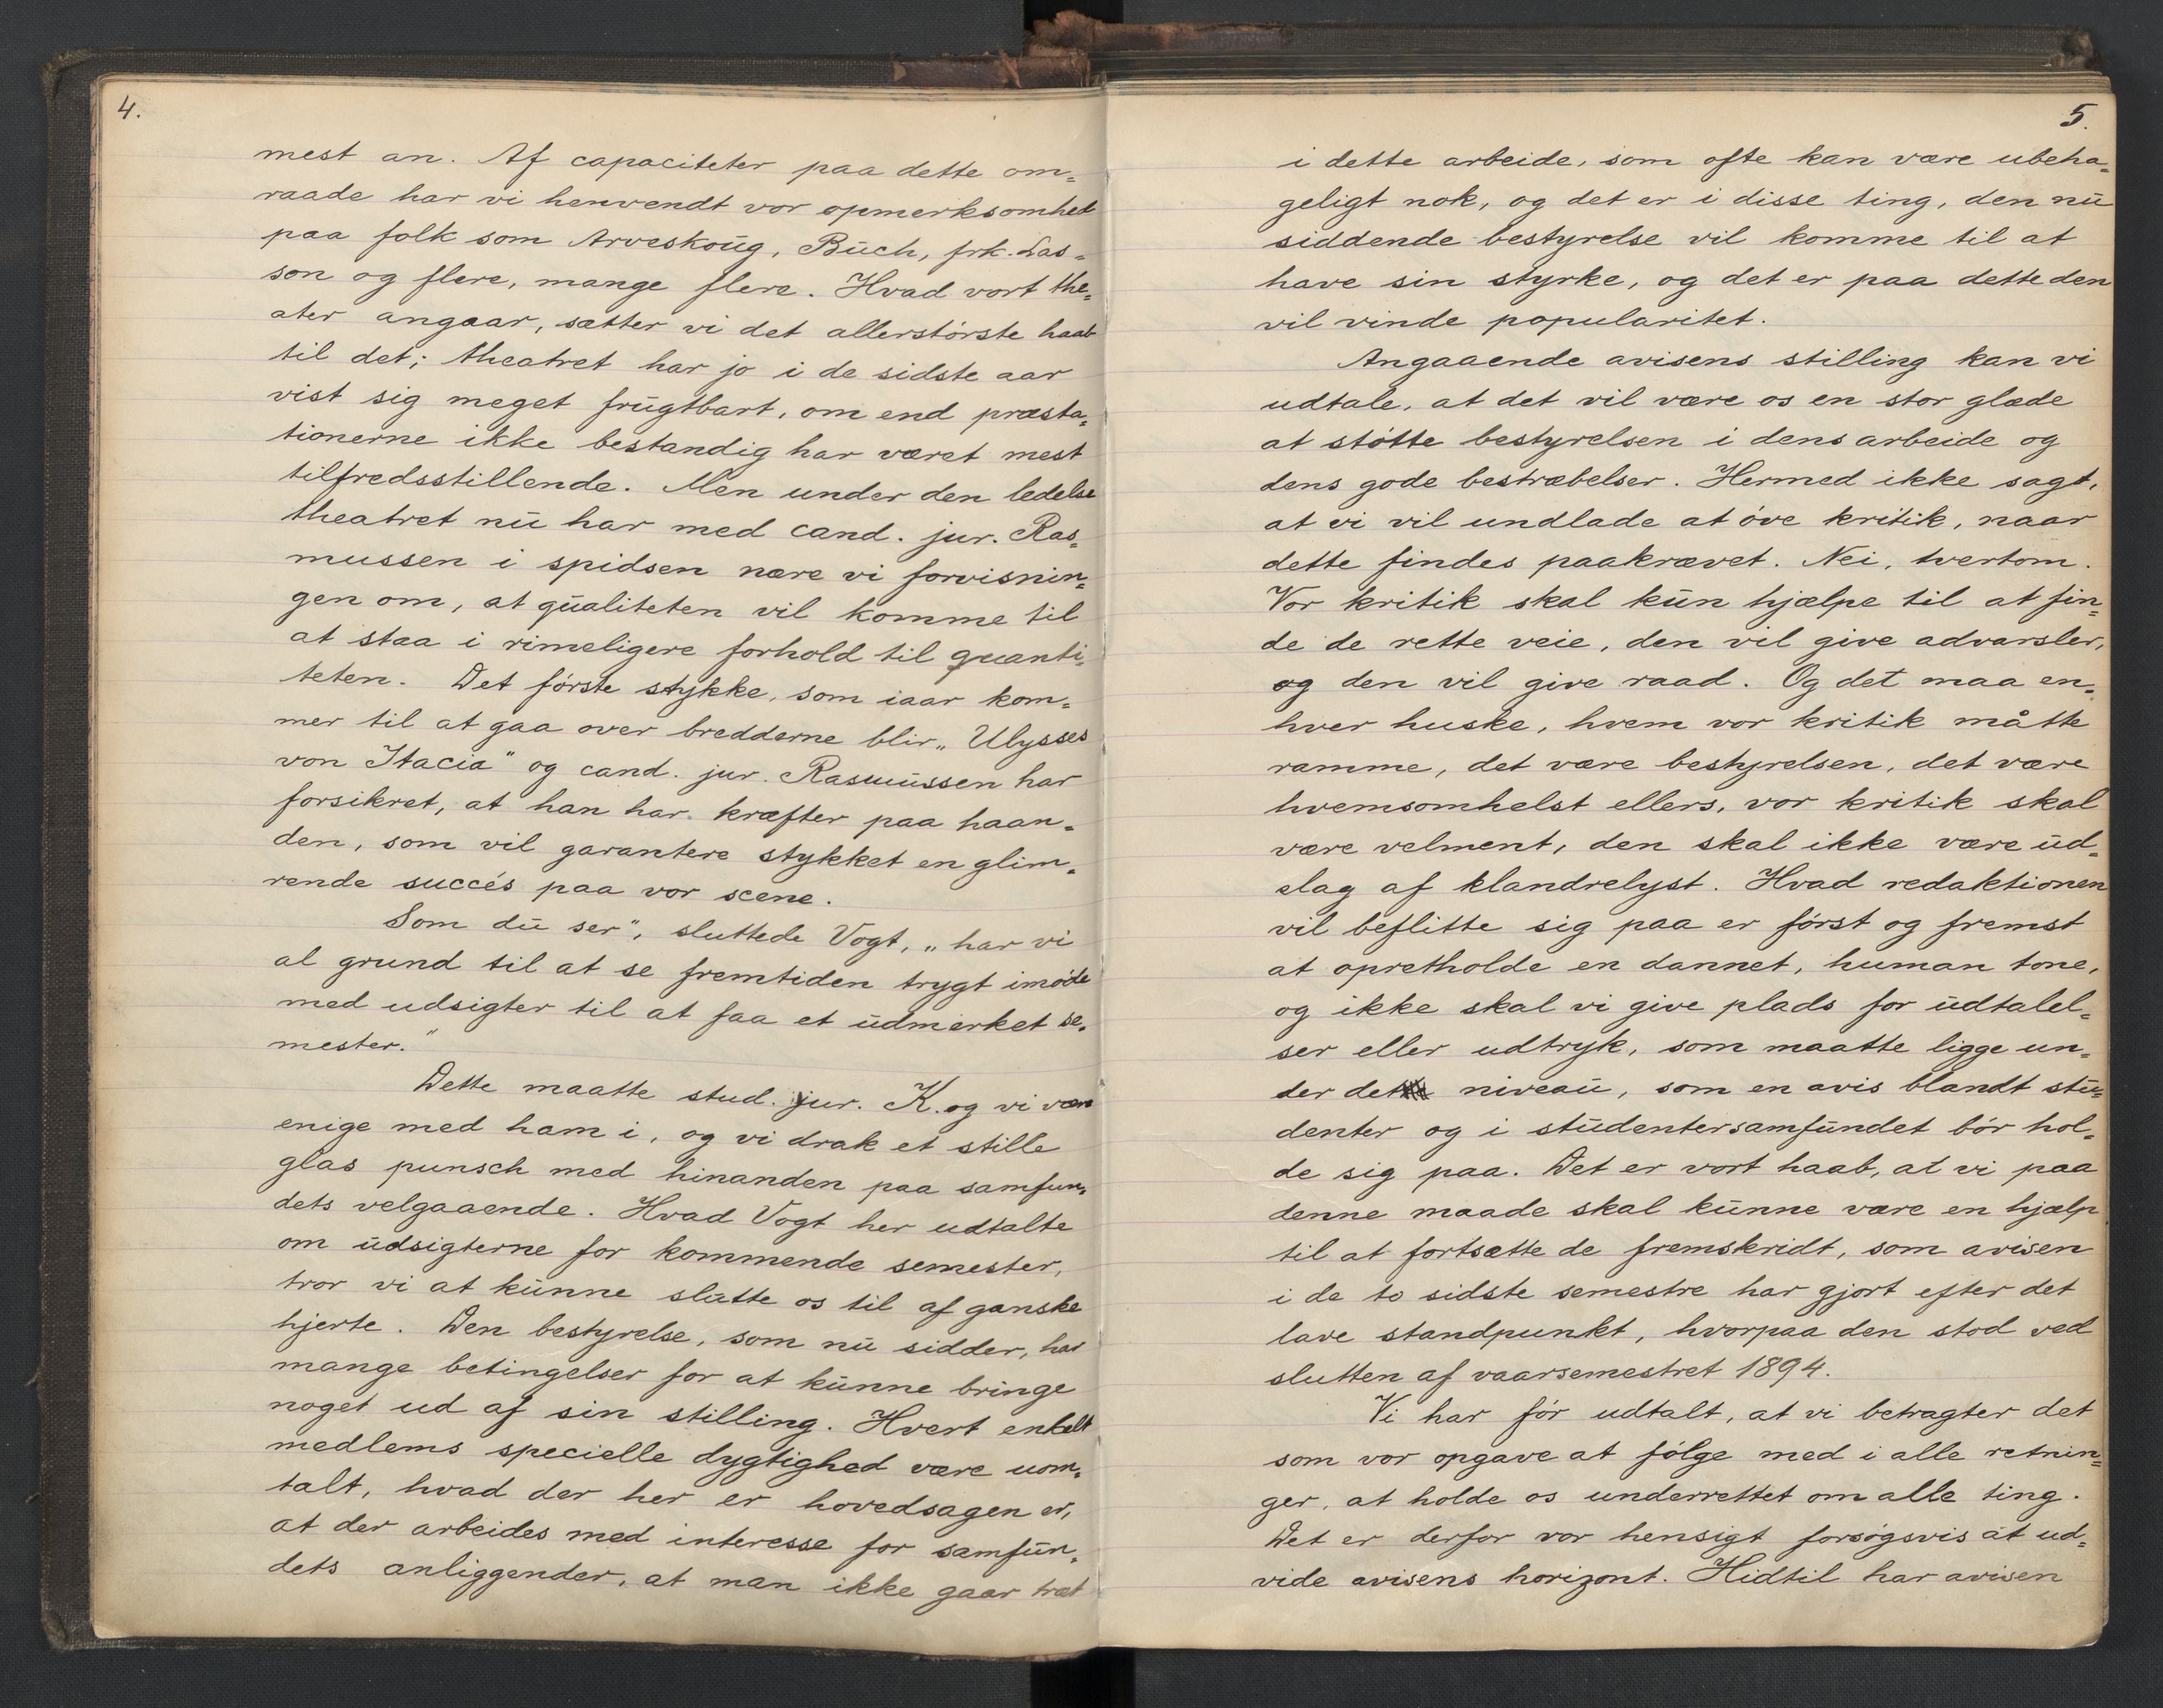 4.
mest an. Af capaciteter paa dette om=
raade har vi henvendt vor opmerksomhed
paa folk som Arveskoug, Buch, frk. Las=
son og flere, mange flere. Hvad vort the=
ater angaar, sætter vi det allerstörste haab
til det; theatret har jo i de sidste aar
vist sig meget frugtbart, om end præsta=
tionerne ikke bestandig har været mest
tilfredsstillende. Men under den ledelse
theatret nu har med cand. jur. Ras=
mussen i spidsen nære vi forvisnin=
gen om, at qualiteten vil komme til
at staa i rimeligere forhold til quanti=
teten. Det förste stykke, som iaar kom=
mer til at gaa over bredderne blir „Ulysses
von Itacia" og cand. jur. Rasmussen har
forsikret, at han har kræfter paa haan=
den, som vil garantere stykket en glim=
rende succés paa vor scene.
Som du ser", sluttede Vogt, „har vi
al grund til at se fremtiden trygt imöde
med udsigter til at faa et udmerket se=
mester."
Dette maatte stud. jur. K. og vi være
enige med ham i, og vi drak et stille
glas punsch med hinanden paa samfun=
dets velgaaende. Hvad Vogt her udtalte
om udsigterne for kommende semester,
tror vi at kunne slutte os til af ganske
hjerte. Den bestyrelse, som nu sidder, har
mange betingelser for at kunne bringe
noget ud af sin stilling. Hvert enkelt
medlems specielle dygtighed være uom=
talt, hvad der her er hovedsagen er,
at der arbeides med interesse for samfun=
dets anliggender, at man ikke gaar træt
5.
i dette arbeide, som ofte kan være ubeha=
geligt nok, og det er i disse ting, den nu
siddende bestyrelse vil komme til at
have sin styrke, og det er paa dette den
vil vinde popularitet.
Angaaende avisens stilling kan vi
udtale, at det vil være os en stor glæde
at stötte bestyrelsen i dens arbeide og
dens gode bestræbelser. Hermed ikke sagt,
at vi vil undlade at öve kritik, naar
dette findes paakrævet. Nei, tvertom.
Vor kritik skal kun hjælpe til at fin=
de de rette veie, den vil give advarsler,
og den vil give raad. Og det maa en=
hver huske, hvem vor kritik måtte
ramme, det være bestyrelsen, det være
hvemsomhelst ellers, vor kritik skal
være velment, den skal ikke være ud=
slag af klandrelyst. Hvad redaktionen
vil beflitte sig paa er först og fremst
at opretholde en dannet, human tone,
og ikke skal vi give plads for udtalel=
ser eller udtryk, som maatte ligge un=
der det niveau, som en avis blandt stu=
denter og i studentersamfundet bör hol=
de sig paa. Det er vort haab, at vi paa
denne maade skal kunne være en hjælp
til at fortsætte de fremskridt, som avisen
i de to sidste semestre har gjort efter det
lave standpunkt, hvorpaa den stod ved
slutten af vaarsemestret 1894.
Vi har för udtalt, at vi betragter det
som vor opgave at fölge med i alle retnin=
ger, at holde os underrettet om alle ting.
Det er derfor vor hensigt forsögsvis at ud=
vide avisens horizont. Hidtil har avisen